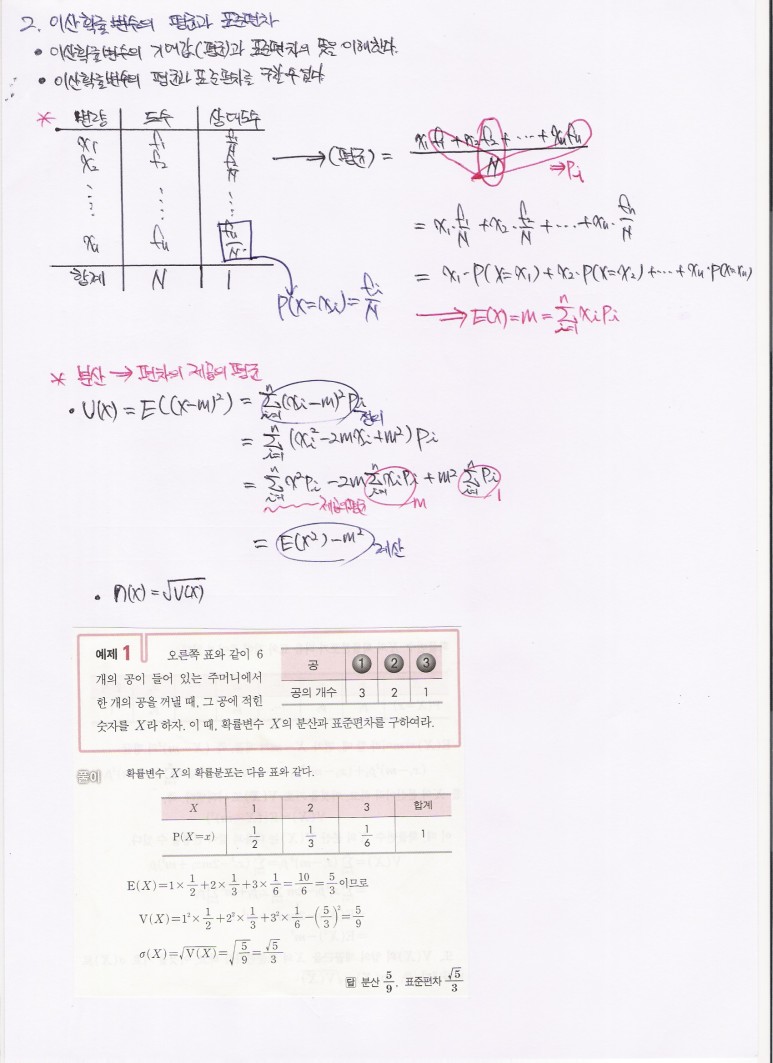 2. 이산확률변수의 평균과 표준편차
• 이산확률변수의 기댓값(평균)과 표준편차의 뜻을 이해한다.
• 이산확률변수의 평균과 표준편차를 구할 수 있다
* 변량 도수 상대도수
x₁ f₁ f₁/N
x₂ f₂ f₂/N
⋮ ⋮ ⋮
xₙ fₙ fₙ/N
합계 N 1
→ (평균) = (x₁f₁+x₂f₂+⋯+xₙfₙ)/N
⇒ Pᵢ
= x₁·f₁/N + x₂·f₂/N + ⋯ + xₙ·fₙ/N
= x₁·P(X=x₁)+x₂·P(X=x₂)+⋯+xₙ·P(X=xₙ)
P(X=xᵢ)=fᵢ/N
→ E(X)=m=∑ⁿᵢ₌₁ xᵢPᵢ
* 분산 → 편차의 제곱의 평균
• V(X) = E((X-m)²) = ∑ⁿᵢ₌₁ (xᵢ-m)²Pᵢ
정의
= ∑ⁿᵢ₌₁ (xᵢ²-2mxᵢ+m²) Pᵢ
= ∑ⁿᵢ₌₁ x²Pᵢ -2m∑ⁿᵢ₌₁ xᵢPᵢ + m² ∑ⁿᵢ₌₁ Pᵢ
제곱의 평균 m 1
= E(X²)-m² 계산
• σ(X)=√V(X)
예제 1 오른쪽 표와 같이 6
개의 공이 들어 있는 주머니에서
한 개의 공을 꺼낼 때, 그 공에 적힌
숫자를 X라 하자. 이 때, 확률변수 X의 분산과 표준편차를 구하여라.
공 1 2 3
공의 개수 3 2 1
풀이 확률변수 X의 확률분포는 다음 표와 같다.
X 1 2 3 합계
P(X=x) 1/2 1/3 1/6 1
E(X)=1×1/2+2×1/3+3×1/6=10/6=5/3이므로
V(X)=1²×1/2+2²×1/3+3²×1/6-(5/3)²=5/9
σ(X)=√V(X)=√(5/9)=√5/3
답 분산 5/9, 표준편차 √5/3